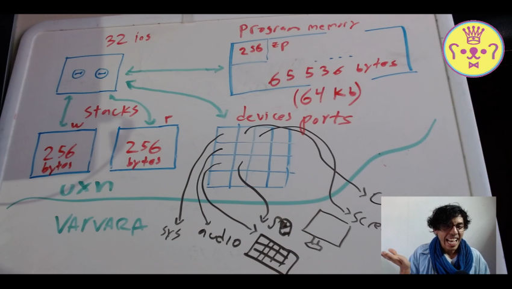 32 ios
program memory
256 zp
65 536 bytes
(64 kb)
stacks
w r
256
bytes
256
bytes
devices ports
uxn
VARVARA
sys
audio
Scre
C